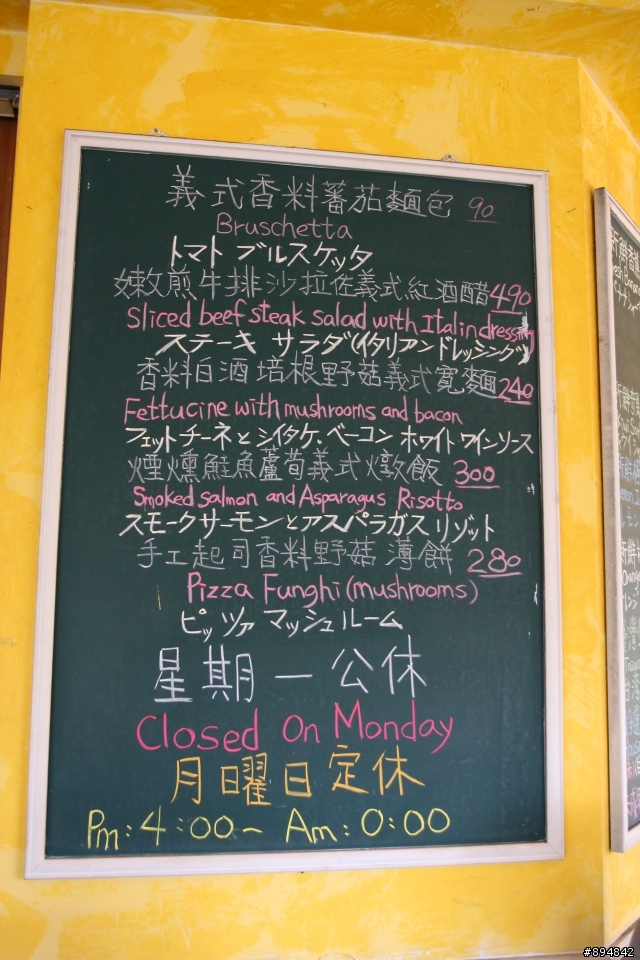 義式香料蕃茄麵包 90
Bruschetta
トマト ブルスケッタ
嫩煎牛排沙拉佐義式紅酒醋490
Sliced beef steak salad with Italin dressing
ステーキ サラダ(イタリアンドレッシング)
香料白酒培根野菇義式寬麵240
Fettucine with mushrooms and bacon
フェットチーネとシイタケ.ベーコン ホワイトワインソース
煙燻鮭魚蘆荀義式燉飯 300
Smoked salmon and Asparagus Risotto
スモークサーモンとアスパラガス リゾット
手工起司香料野菇薄餅 280
Pizza Funghi (mushrooms)
ピッツァ マッシュルーム
星期一公休
Closed On Monday
月曜日定休
Pm:4:00~ Am:0:00
#894842